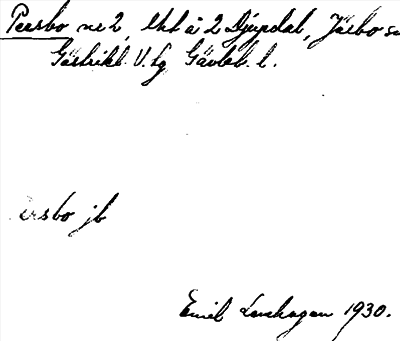 Persbo nr 2, lht å 2 Djupdal, Järbo sn
Gästrikl. V. tg Gävleb. l.
Persbo jb
Emil Lenhagen 1930.